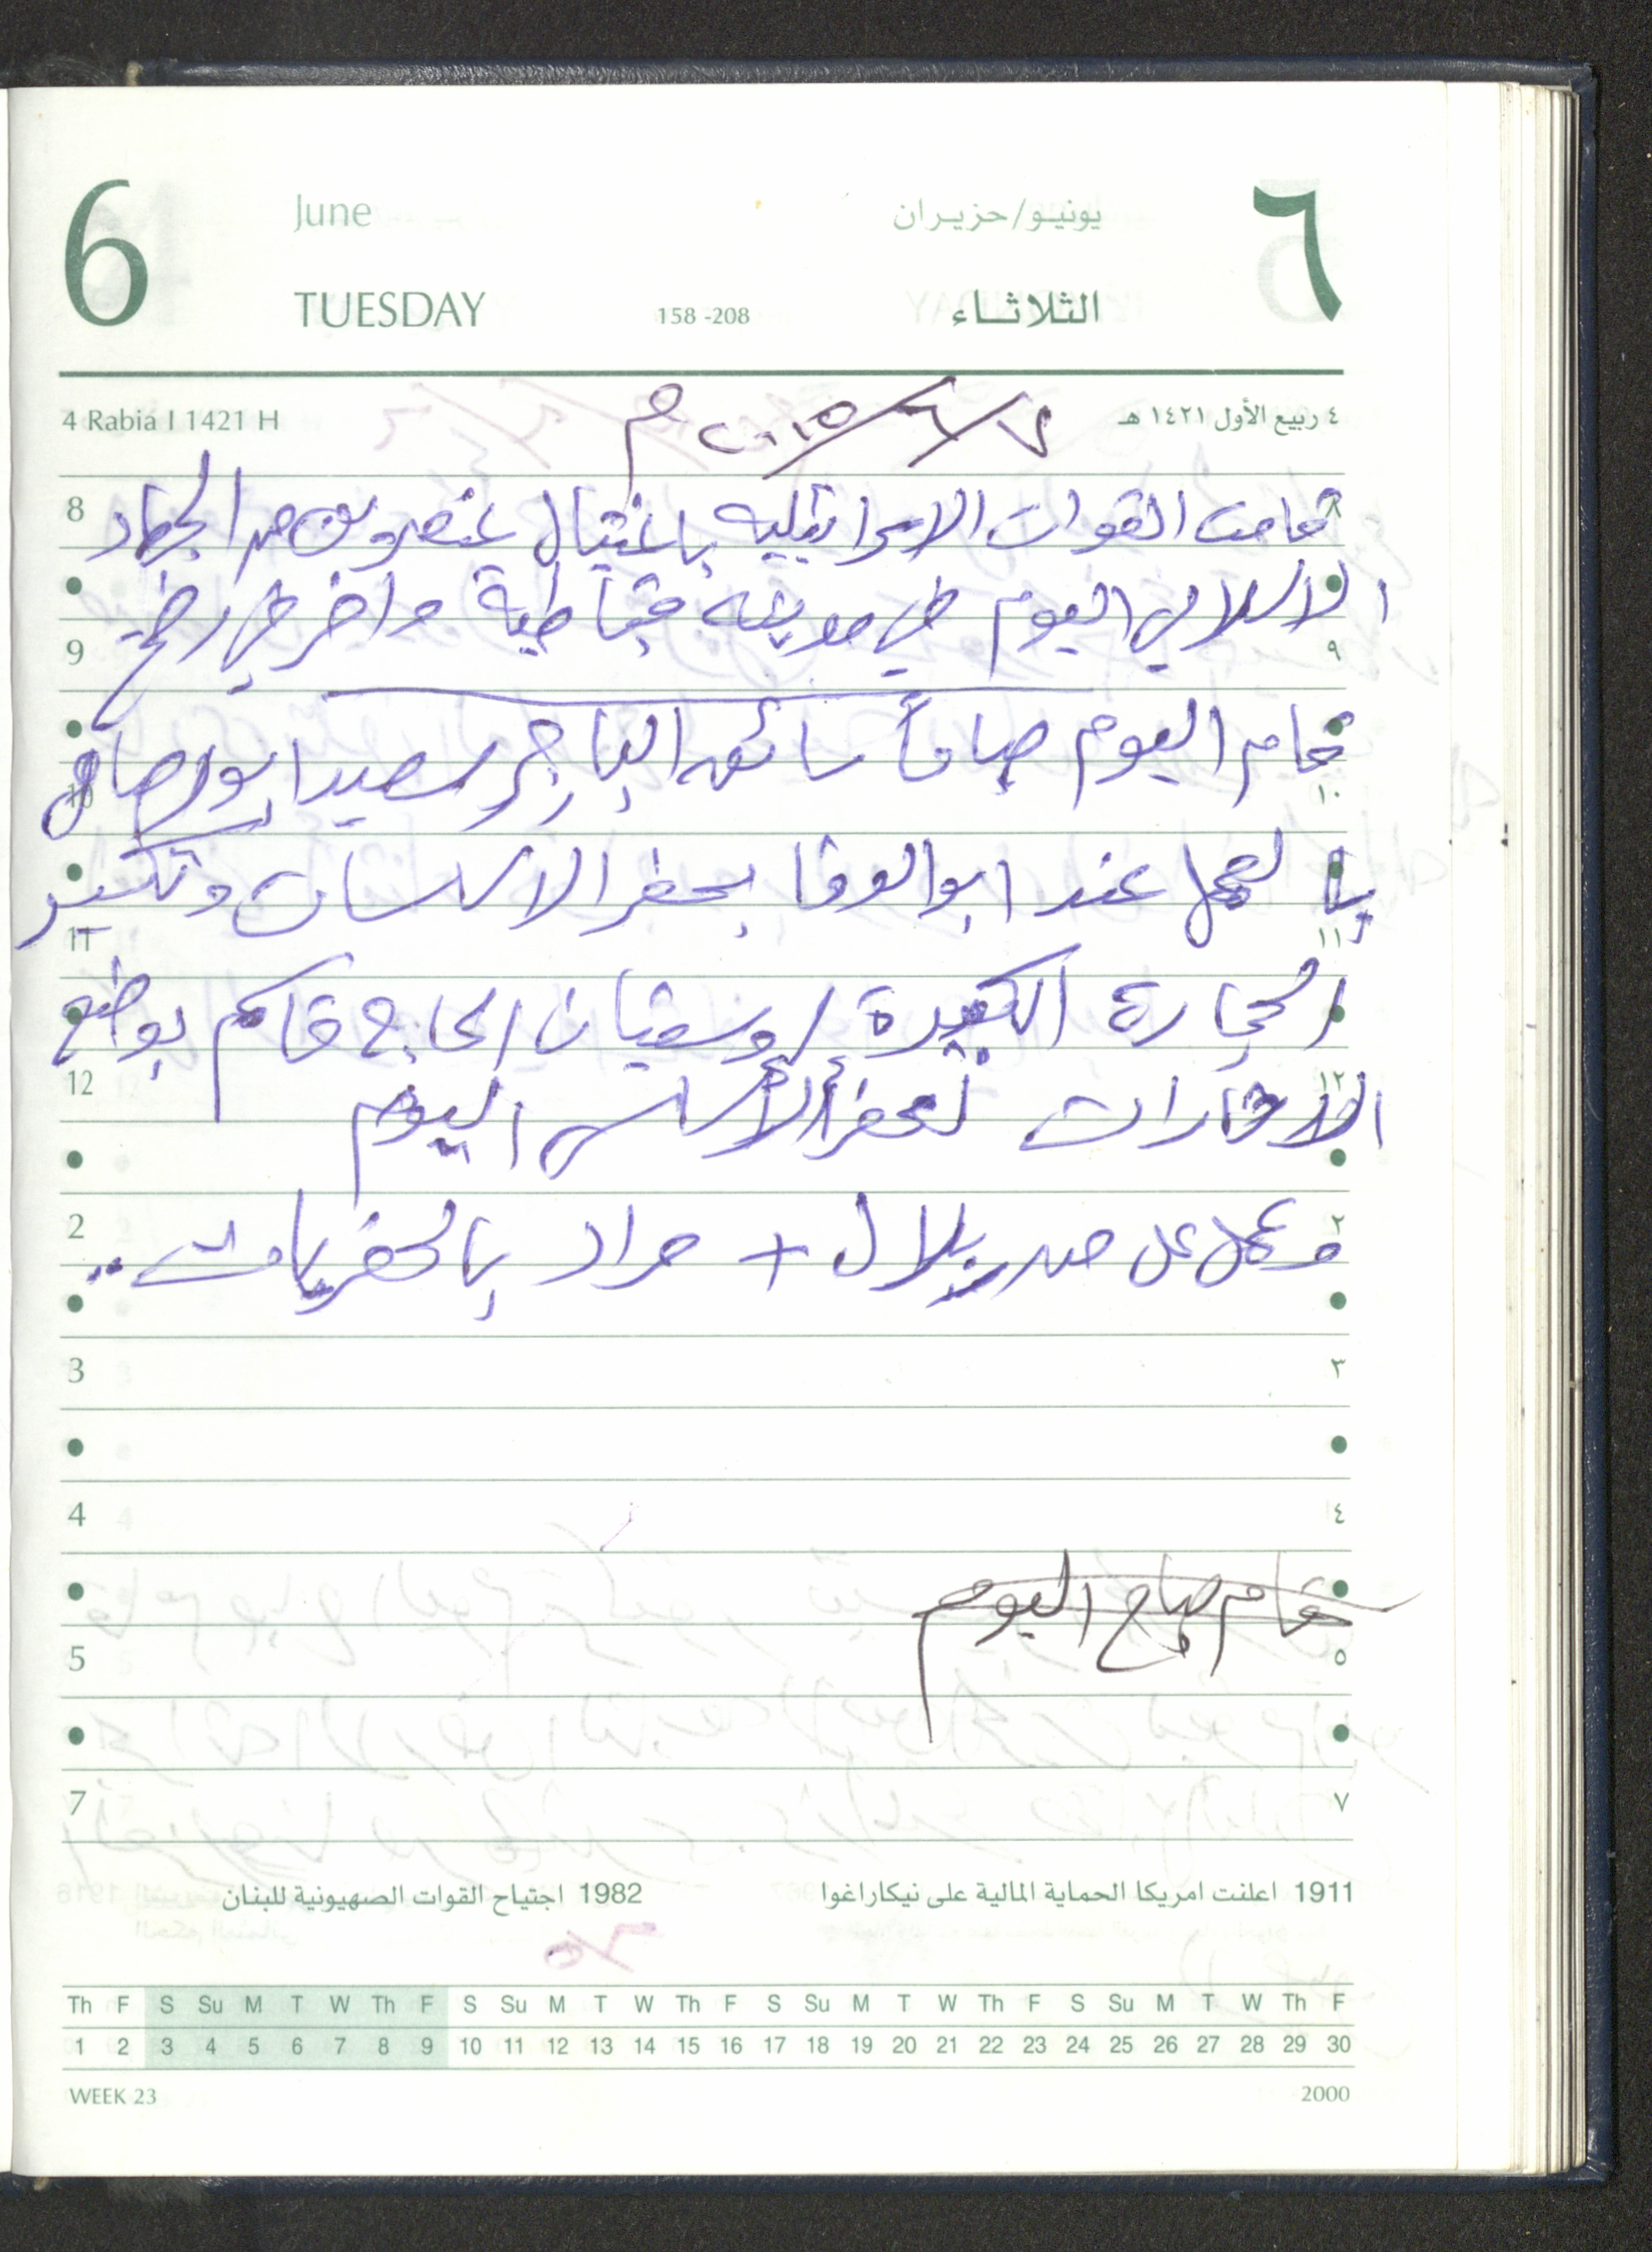 6 June يونيو/حزيران ٦
TUESDAY 158 -208 الثلاثاء
4 Rabia I 1421 H ٤ ربيع الأول ١٤٢١ هـ
٢٠٠٥/٦/٧ م
8 قامت القوات الاسرائيلية باغتيال عنصرين من الجهاد ٨
الاسلامي اليوم في مدينة قباطية واخر في رفح
9 ٩
قام اليوم صباحاً سائق الباجر سعيد ابو
10 ١٠
بالعمل عند ابو الوفا بحفر الاساسات وتكسير
11 ١١
الحجارة الكبيرة وسفيان الحاج قاسم بوضع
12 الاشارات لحفر الأساس اليوم ١٢
2 وعمل كل من بلال + مراد بالحفريات .. ٢
3 ٣
4 ٤
قام صباح اليوم
5 ٥
7 ٧
1911 اعلنت امريكا الحماية المالية على نيكاراغوا 1982 اجتياح القوات الصهيونية للبنان
Th F S Su M T W Th F S Su M T W Th F S Su M T W Th F S Su M T W Th F
1 2 3 4 5 6 7 8 9 10 11 12 13 14 15 16 17 18 19 20 21 22 23 24 25 26 27 28 29 30
WEEK 23 2000